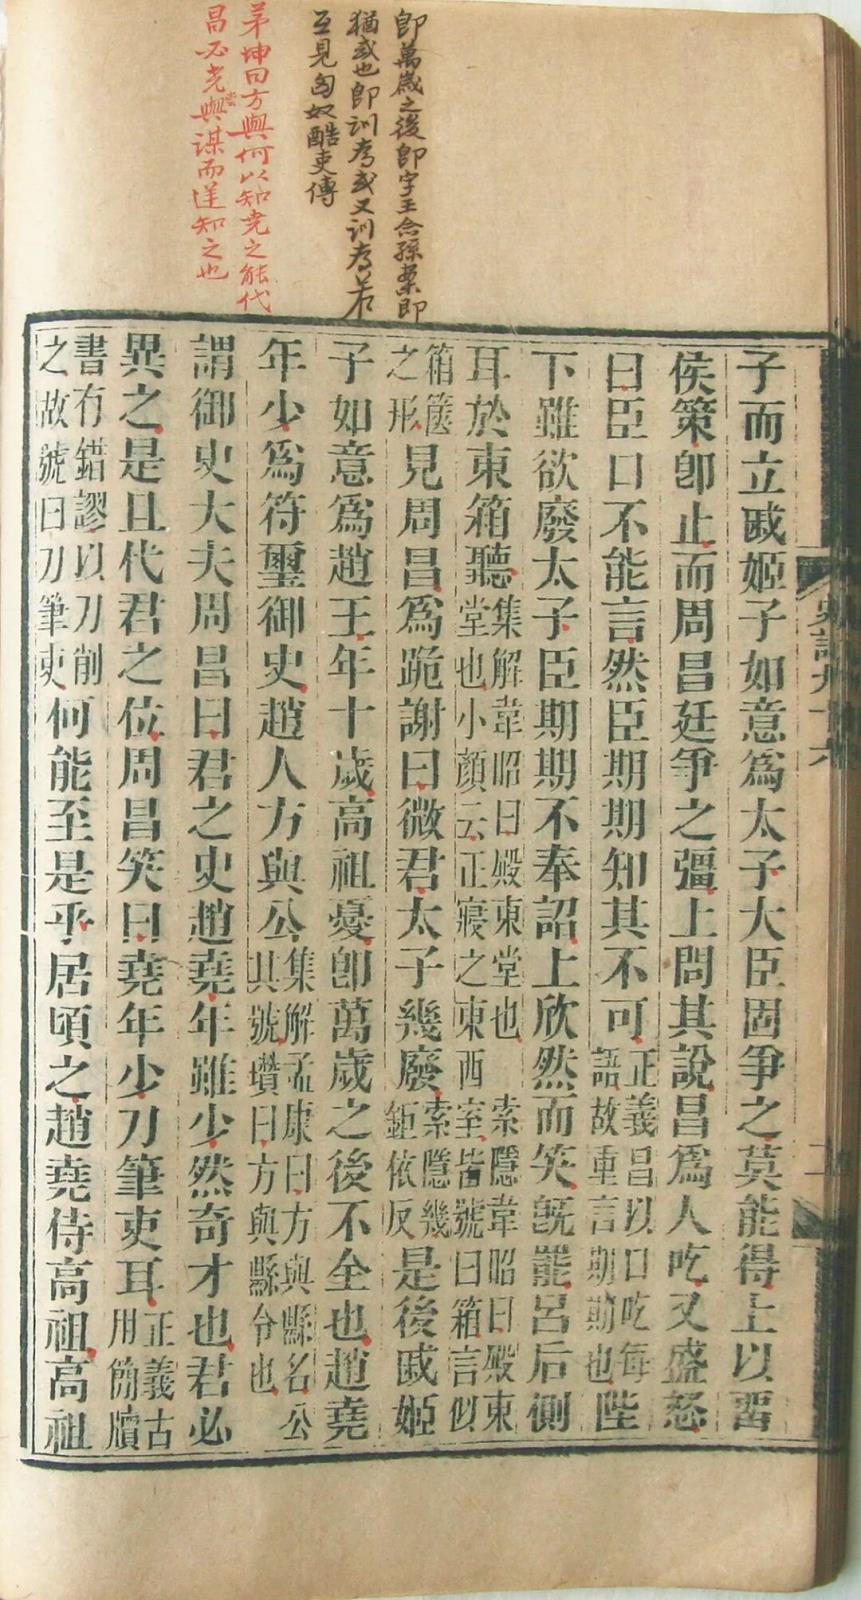 即萬歲之後即字王念孫案即
猶或也即訓為或又訓為若
互見匈奴酷吏傳
茅坤曰方與何以知堯之能代
昌必堯嘗與謀而逆知之也
史記九十六
子而立戚姬子如意爲太子大臣固爭之莫能得上以畱
侯策卽止而周昌廷爭之彊上問其說昌爲人吃又盛怒
曰臣口不能言然臣期期知其不可正義昌以口吃每語故重言期期也陛
下雖欲廢太子臣期期不奉詔上欣然而笑旣罷呂后側
耳於東箱聽集解韋昭曰殿東堂也索隱韋昭曰殿東堂也小顏云正寢之東西室皆號曰箱言似
箱篋之形見周昌爲跪謝曰微君太子幾廢索隱幾鉅依反是後戚姬
子如意爲趙王年十歲高祖憂卽萬歲之後不全也趙堯
年少爲符璽御史趙人方與公集解孟康曰方與縣名公其號瓚曰方與縣令也
謂御史大夫周昌曰君之史趙堯年雖少然奇才也君必
異之是且代君之位周昌笑曰堯年少刀筆吏耳正義古用簡牘
書有錯謬以刀削之故號曰刀筆吏何能至是乎居頃之趙堯侍高祖高祖